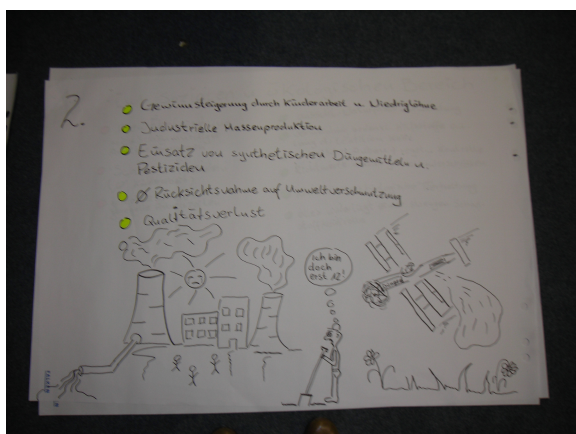 2.
Gewinnsteigerung durch Kinderarbeit u. Niedriglöhne
Industrielle Massenproduktion
Einsatz von synthetischen Düngemitteln u.
Pestiziden
Ø Rücksichtsnahme auf Umweltverschmutzung
Qualitätsverlust
ich bin
doch
erst 12!